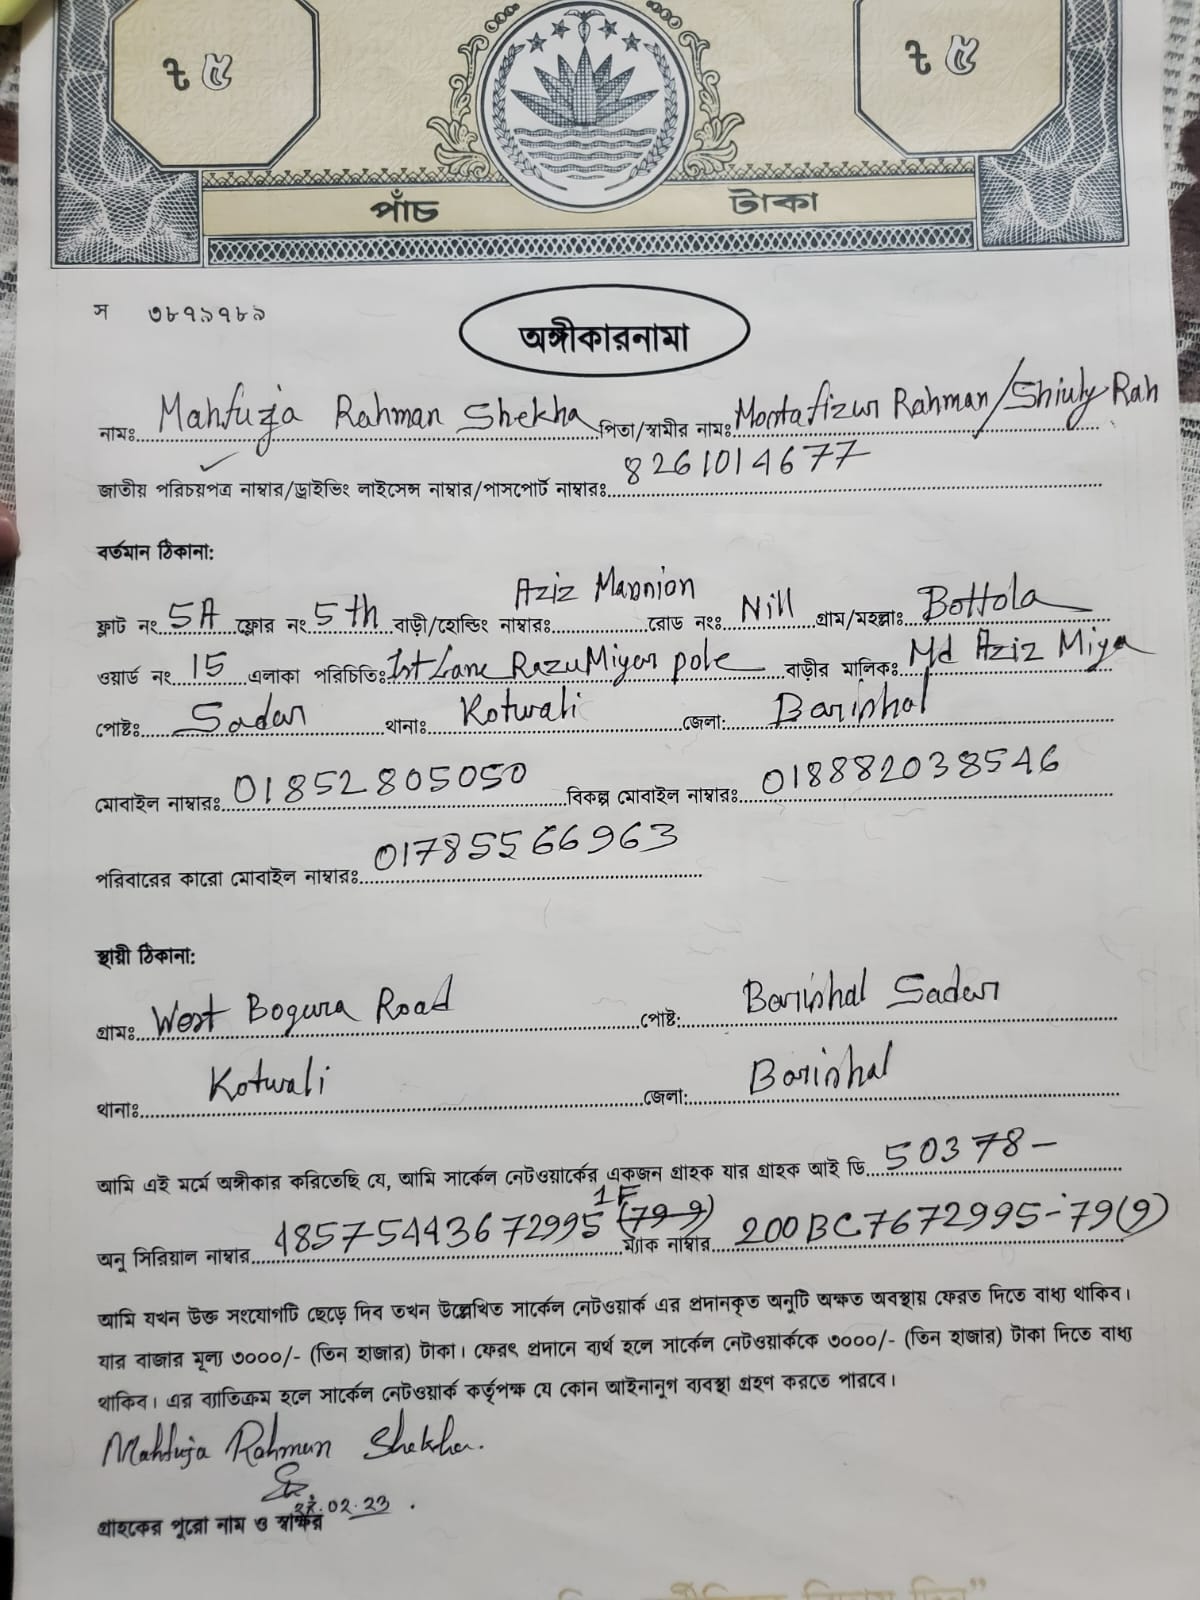 ৳ ৫ ৳ ৫
পাঁচ টাকা
স ৩৮৭১৭৮৯
অঙ্গীকারনামা
নামঃ Mahfuza Rahman Shekha পিতা/স্বামীর নামঃ Mostafizur Rahman/Shiuly Rah
জাতীয় পরিচয়পত্র নাম্বার/ড্রাইভিং লাইসেন্স নাম্বার/পাসপোর্ট নাম্বারঃ 8261014677
বর্তমান ঠিকানা:
ফ্লাট নং 5A ফ্লোর নং 5th বাড়ী/হোল্ডিং নাম্বারঃ Aziz Mansion রোড নংঃ Nill গ্রাম/মহল্লাঃ Bottola
ওয়ার্ড নং 15 এলাকা পরিচিতিঃ 1st Lane Razu Miyar pole বাড়ীর মালিকঃ Md Aziz Miya
পোষ্টঃ Sadar থানাঃ Kotwali জেলা: Barishal
মোবাইল নাম্বারঃ 01852805050 বিকল্প মোবাইল নাম্বারঃ 018882038546
পরিবারের কারো মোবাইল নাম্বারঃ 01785566963
স্থায়ী ঠিকানা:
গ্রামঃ West Bogura Road পোষ্ট: Barishal Sadar
থানাঃ Kotwali জেলা: Barishal
আমি এই মর্মে অঙ্গীকার করিতেছি যে, আমি সার্কেল নেটওয়ার্কের একজন গ্রাহক যার গ্রাহক আই ডি 50378-
অনু সিরিয়াল নাম্বার 48575443672995 1F (79 9) ম্যাক নাম্বার 200BC7672995-79(9)
আমি যখন উক্ত সংযোগটি ছেড়ে দিব তখন উল্লেখিত সার্কেল নেটওয়ার্ক এর প্রদানকৃত অনুটি অক্ষত অবস্থায় ফেরত দিতে বাধ্য থাকিব।
যার বাজার মূল্য ৩০০০/- (তিন হাজার) টাকা। ফেরৎ প্রদানে ব্যর্থ হলে সার্কেল নেটওয়ার্ককে ৩০০০/- (তিন হাজার) টাকা দিতে বাধ্য
থাকিব। এর ব্যাতিক্রম হলে সার্কেল নেটওয়ার্ক কর্তৃপক্ষ যে কোন আইনানুগ ব্যবস্থা গ্রহণ করতে পারবে।
Mahfuja Rahman Shekha.
02.23
গ্রাহকের পুরো নাম ও স্বাক্ষর